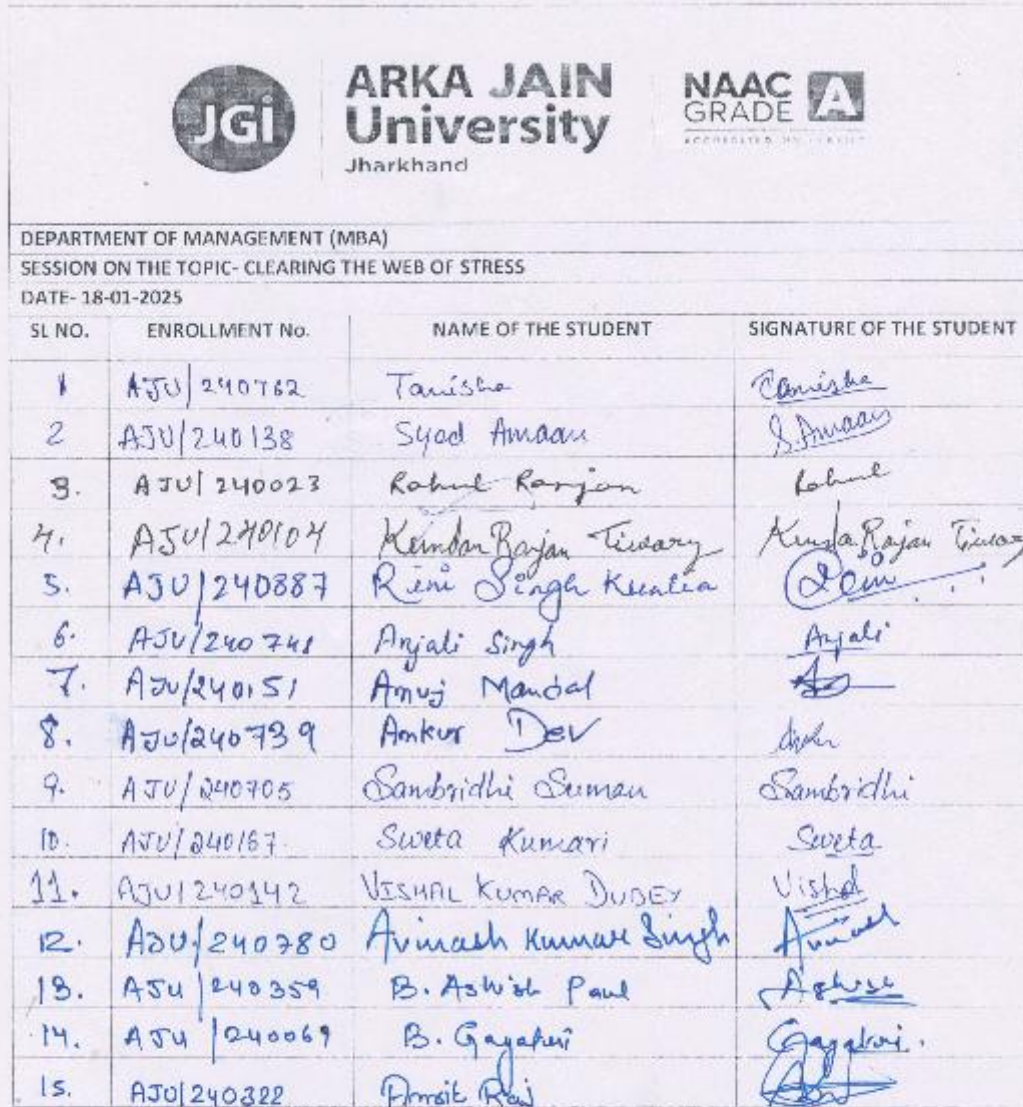 JGi
ARKA JAIN
University
Jharkhand
NAAC
GRADE A
DEPARTMENT OF MANAGEMENT (MBA)
SESSION ON THE TOPIC- CLEARING THE WEB OF STRESS
DATE- 18-01-2025
SL NO. ENROLLMENT No. NAME OF THE STUDENT SIGNATURE OF THE STUDENT
1 AJU/240762 Tanisha Tanisha
2 AJU/240138 Syed Amaan S.Amaan
3. AJU/240023 Rahul Ranjan Rahul
4. AJU/240104 Kundan Ranjan Tiwary
5. AJU/240887 Rini Singh
6. AJU/240741 Anjali Singh Anjali
7. AJU/240151 Anuj Mandal
8. AJU/240739 Ankur Dev
9. AJU/240705 Sambridhi Suman Sambridhi
10. AJU/240167. Sweta Kumari Sweta
11. AJU/240142 VISHAL KUMAR DUBEY Vishal
12. AJU/240780 Avinash Kumar Singh Avinash
13. AJU/240359 B. Ashish Paul Ashish
14. AJU/240069 B. Gayatri Gayatri.
15. AJU/240322 Amrit Raj